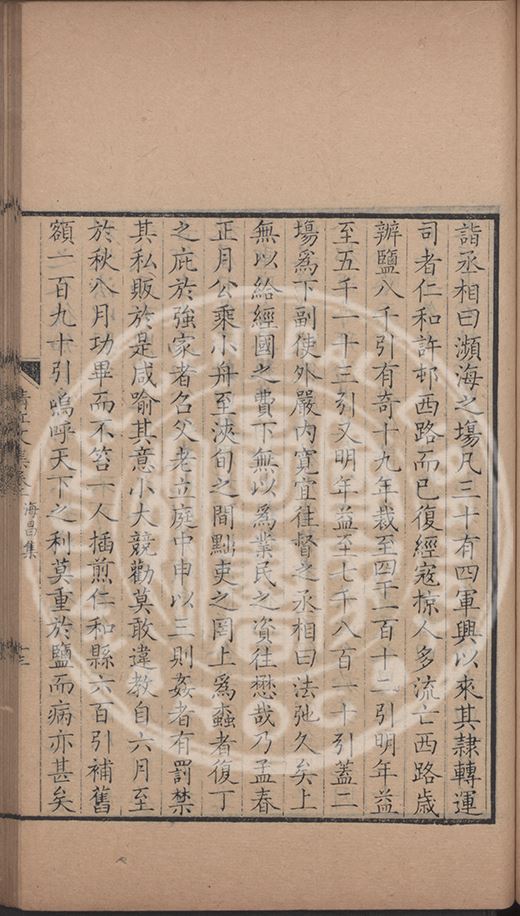 詣丞相曰瀕海之塲凡三十有四軍興以來其隷轉運
司者仁和許邨西路而已復經寇掠人多流亡西路歳
辨鹽八千引有奇十九年裁至四千一百十二引明年益
至五千一十三引又明年益至七千八百一十引蓋二
塲爲下副使外嚴内寛宜徃督之丞相曰法弛久矣上
無以給經國之費下無以爲業民之資徃懋哉乃孟春
正月公乘小舟至浹旬之間黠吏之罔上爲蠧者復丁
之庇於強家者召父老立庭中申以三則姦者有罰禁
其私販於是咸喻其意小大競勸莫敢違教自六月至
於秋八月功畢而不笞一人揷煎仁和縣六百引補舊
額一百九十引嗚呼天下之利莫重於鹽而病亦甚矣
海昌集